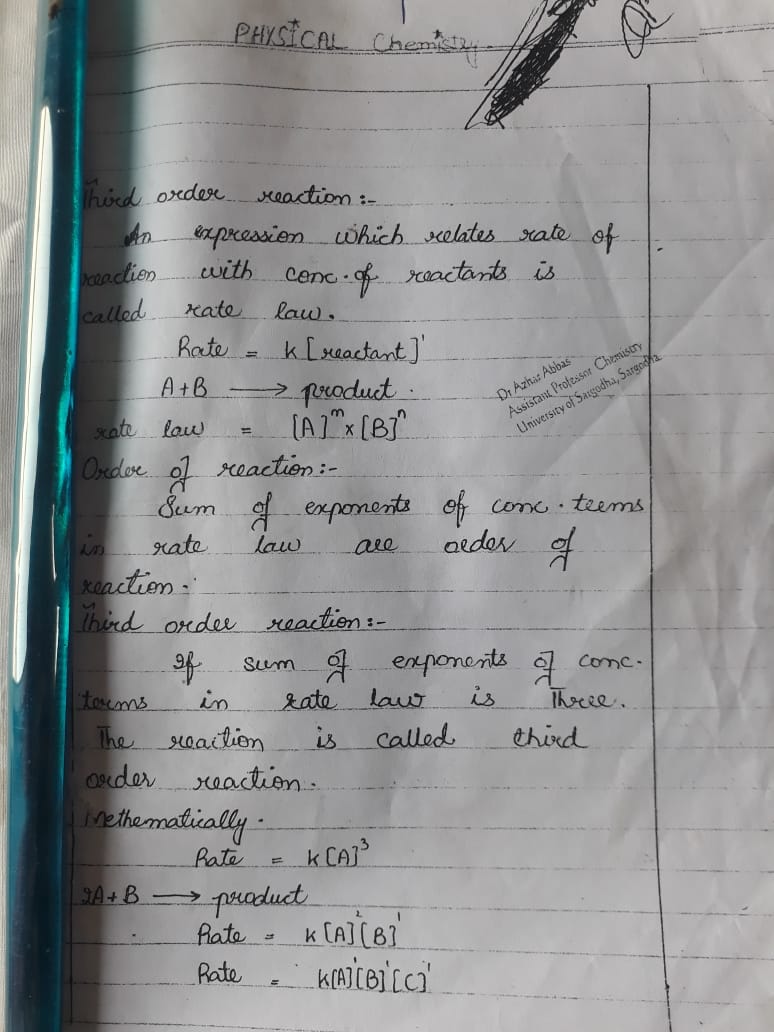 PHYSICAL Chemistry.
Third order reaction:-
An expression which relates rate of
reaction with conc. of reactants is
called rate law.
Rate = k[reactant]¹
A+B ⟶ product.
rate law = [A]ᵐ×[B]ⁿ
Dr Azhar Abbas
Assistant Professor Chemistry
University of Sargodha, Sargodha
Order of reaction:-
Sum of exponents of conc. terms
in rate law are order of
reaction.
Third order reaction:-
If sum of exponents of conc.
terms in rate law is Three.
The reaction is called third
order reaction.
Methematically.
Rate = k[A]³
2A+B ⟶ product
Rate = k[A]²[B]¹
Rate = k[A]¹[B]¹[C]¹